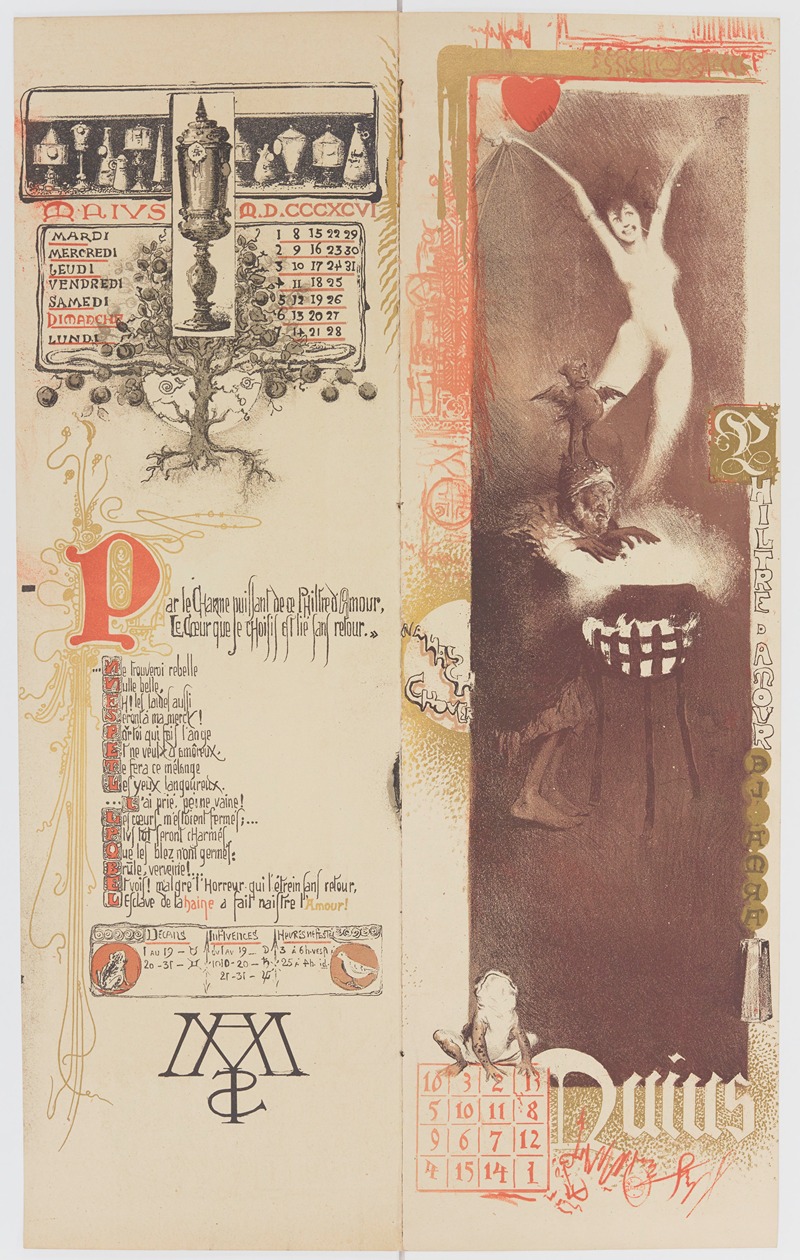 MAIUS M.D.CCCXCVI
MARDI 1 8 15 22 29
MERCREDI 2 9 16 23 30
LEUDI 3 10 17 24 31
VENDREDI 4 11 18 25
SAMEDI 5 12 19 26
DIMANCHE 6 13 20 27
LUNDI 7 14 21 28
Par le Charme puissant de ce Philtre d'Amour,
Le Cœur que je choisis est lié sans retour.»
...Me trouveroi rebelle
Nulle belle,
H! les laides aussi
Seront à ma mercy!
Portoi qui fais l'ange
Et ne veux d'amoreux.
Te fera ce mélange
Les yeux langoureux.
... L'ai prié, peine vaine!
Les cœurs m'estoient fermés;...
Plus tot seront charmés
Que les blez n'ont germés:
Brûle, verveine!..
Et vois! malgré l'Horreur qui l'étrein sans retour,
L'Esclave de la haine a fait naistre l'Amour!
INFLVENCES
1 AU 19 – ♉
20-31 – ♊
10-20 – ♄
21-31 –
AM
PHILTRE D AMOVR
16 3 2 13
5 10 11 8
9 6 7 12
4 15 14 1
Maius